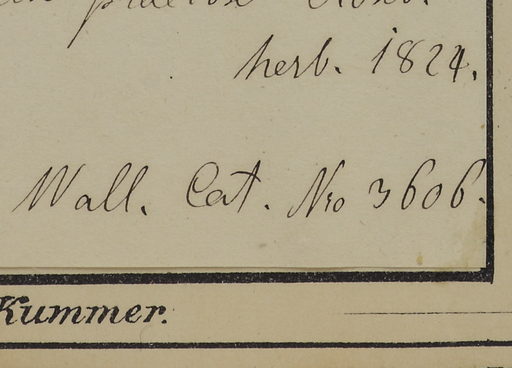 herb. 1824.
Wall. Cat. Nro 3606.
Kummer.